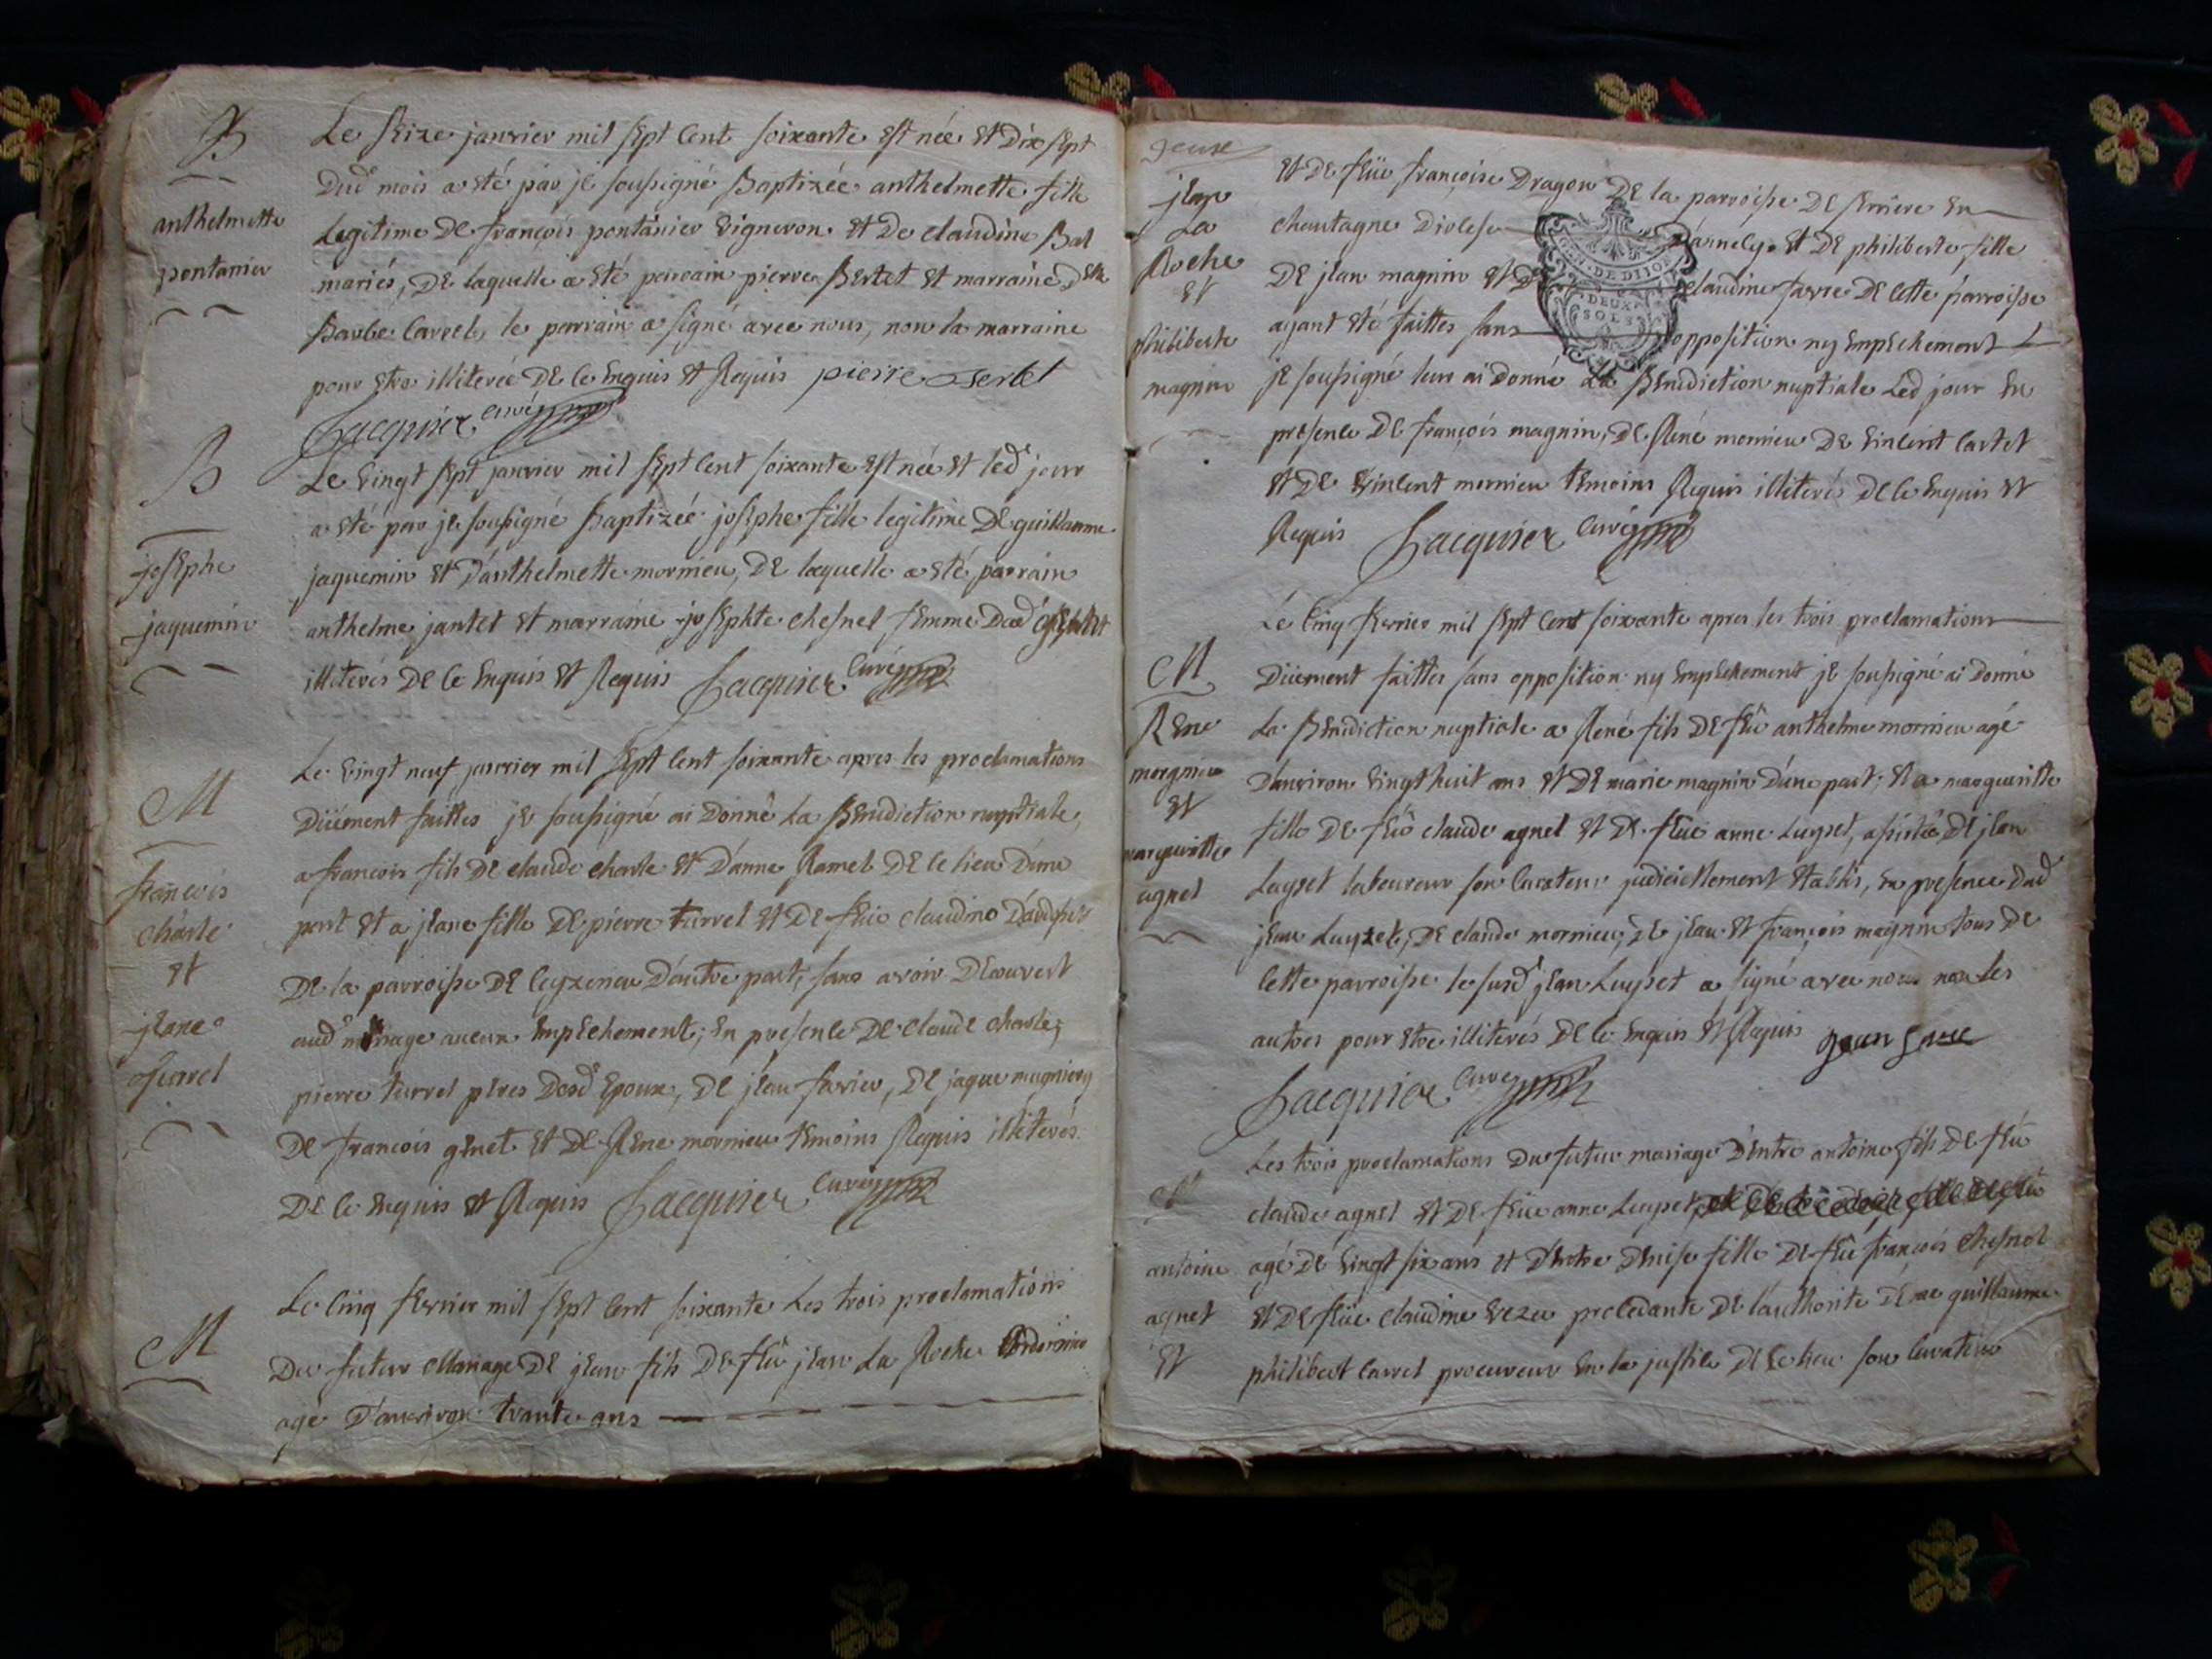 B
anthelmette
pontanier
Le seize janvier mil sept cent soixante est née et dix sept
dud mois a eté par je soussigné Baptizée anthelmette fille
Legitime de françois pontanier vigneron et de claudine Bal
mariés, de laquelle a eté parrain pierre Bertet et marraine delle
Barbe Carrel, le parrain a signé avec nous, non la marraine
pour etre illiterée de ce enquis et Requis pierre Bertet
Jacquier curé
B
josephe
jaquemin
Le vingt sept janvier mil sept cent soixante est née et led jour
a eté par je soussigné Baptizée josephe fille legitime de guillaume
jaquemin et d'anthelmette mornieu, de laquelle a eté parrain
anthelme jantet et marraine josephte chesnel femme dud
illiterés de ce enquis et Requis Jacquier curé
M
françois
charle
et
jeane
turrel
Le vingt neuf janvier mil sept cent soixante apres les proclamations
düement faittes je soussigné ai donné La Benediction nuptiale,
a francois fils de claude charle et d'anne Ramel de ce lieu d'une
part et a jeane fille de pierre turrel et de füe claudine
de la parroisse de ceyzerieu d'autre part, sans avoir decouvert
aud mariage aucun empechement; en presence de claude charle,
pierre turrel peres desd epoux, de jean favier, de jaque mugniery
de francois genet et de Rene mornieu temoins Requis illiterés
de ce enquis et Requis Jacquier curé
M
Le cinq fevrier mil sept cent soixante Les trois proclamations
du futur Mariage de jean fils de fëu jean La Roche
agé d'anviron trante ans
jean
La
Roche
et
philiberte
magnin
et de füe françoise Dragon de la parroisse de serriere en
chautagne Diocese d'annecy et de philiberte fille
de jean magnin et de claudine favre de cette parroisse
GEN. DE DIJON
DEUX
SOLS
ayant eté faittes sans opposition ny empechement
je soussigné leur ai donné La Benediction nuptiale Led jour en
presence de françois magnin, de René mornieu de vincent cartet
et de vincent mornieu temoins Requis illiterés de ce enquis et
Requis Jacquier curé
M
Rene
mornieu
et
margueritte
agnel
Le cinq fevrier mil sept cent soixante apres les trois proclamations
düement faittes sans opposition ny empechement je soussigné ai donné
La Benediction nuptiale a René fils de fëu anthelme mornieu agé
d'anviron vingt huit ans et de marie magnin d'une part, et a margueritte
fille de fëu claude agnel et de füe anne Luyset, assistée de jean
Luyset laboureur son curateur judiciellement etablis, en presence dud
jean Luyzet, de claude mornieu, de jean et françois magnin tous de
cette parroisse le susd jean Luyset a signé avec nous non les
autres pour etre illiterés de ce enquis et Requis
Jacquier curé
M
antoine
agnel
et
Les trois proclamations du futur mariage d'entre antoine fils de fëu
claude agnel et de füe anne Luyset
agé de vingt six ans et d'entre denise fille de fëu françois Chesnel
et de füe claudine vezu procedante de l'authorité de me guillaume
philibert Carrel procureur en la justice de ce lieu son curateur